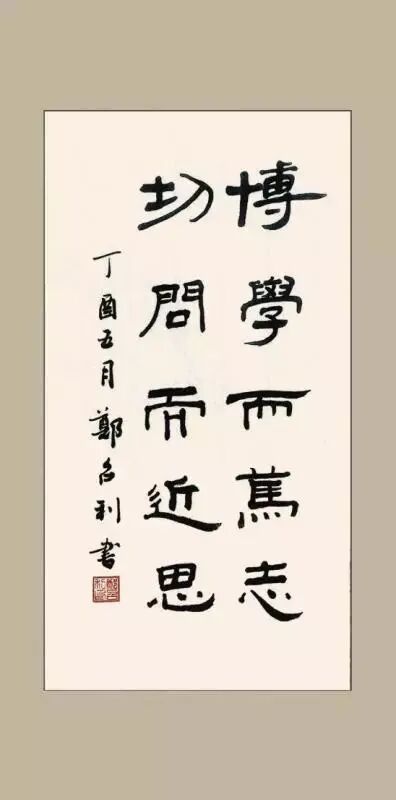 博學而篤志
切問而近思
丁酉五月鄭名利書